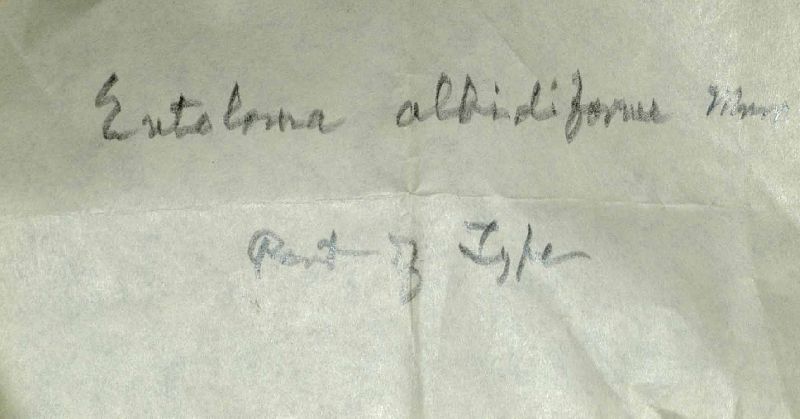 Entoloma albidiforme Murr
Part of Type